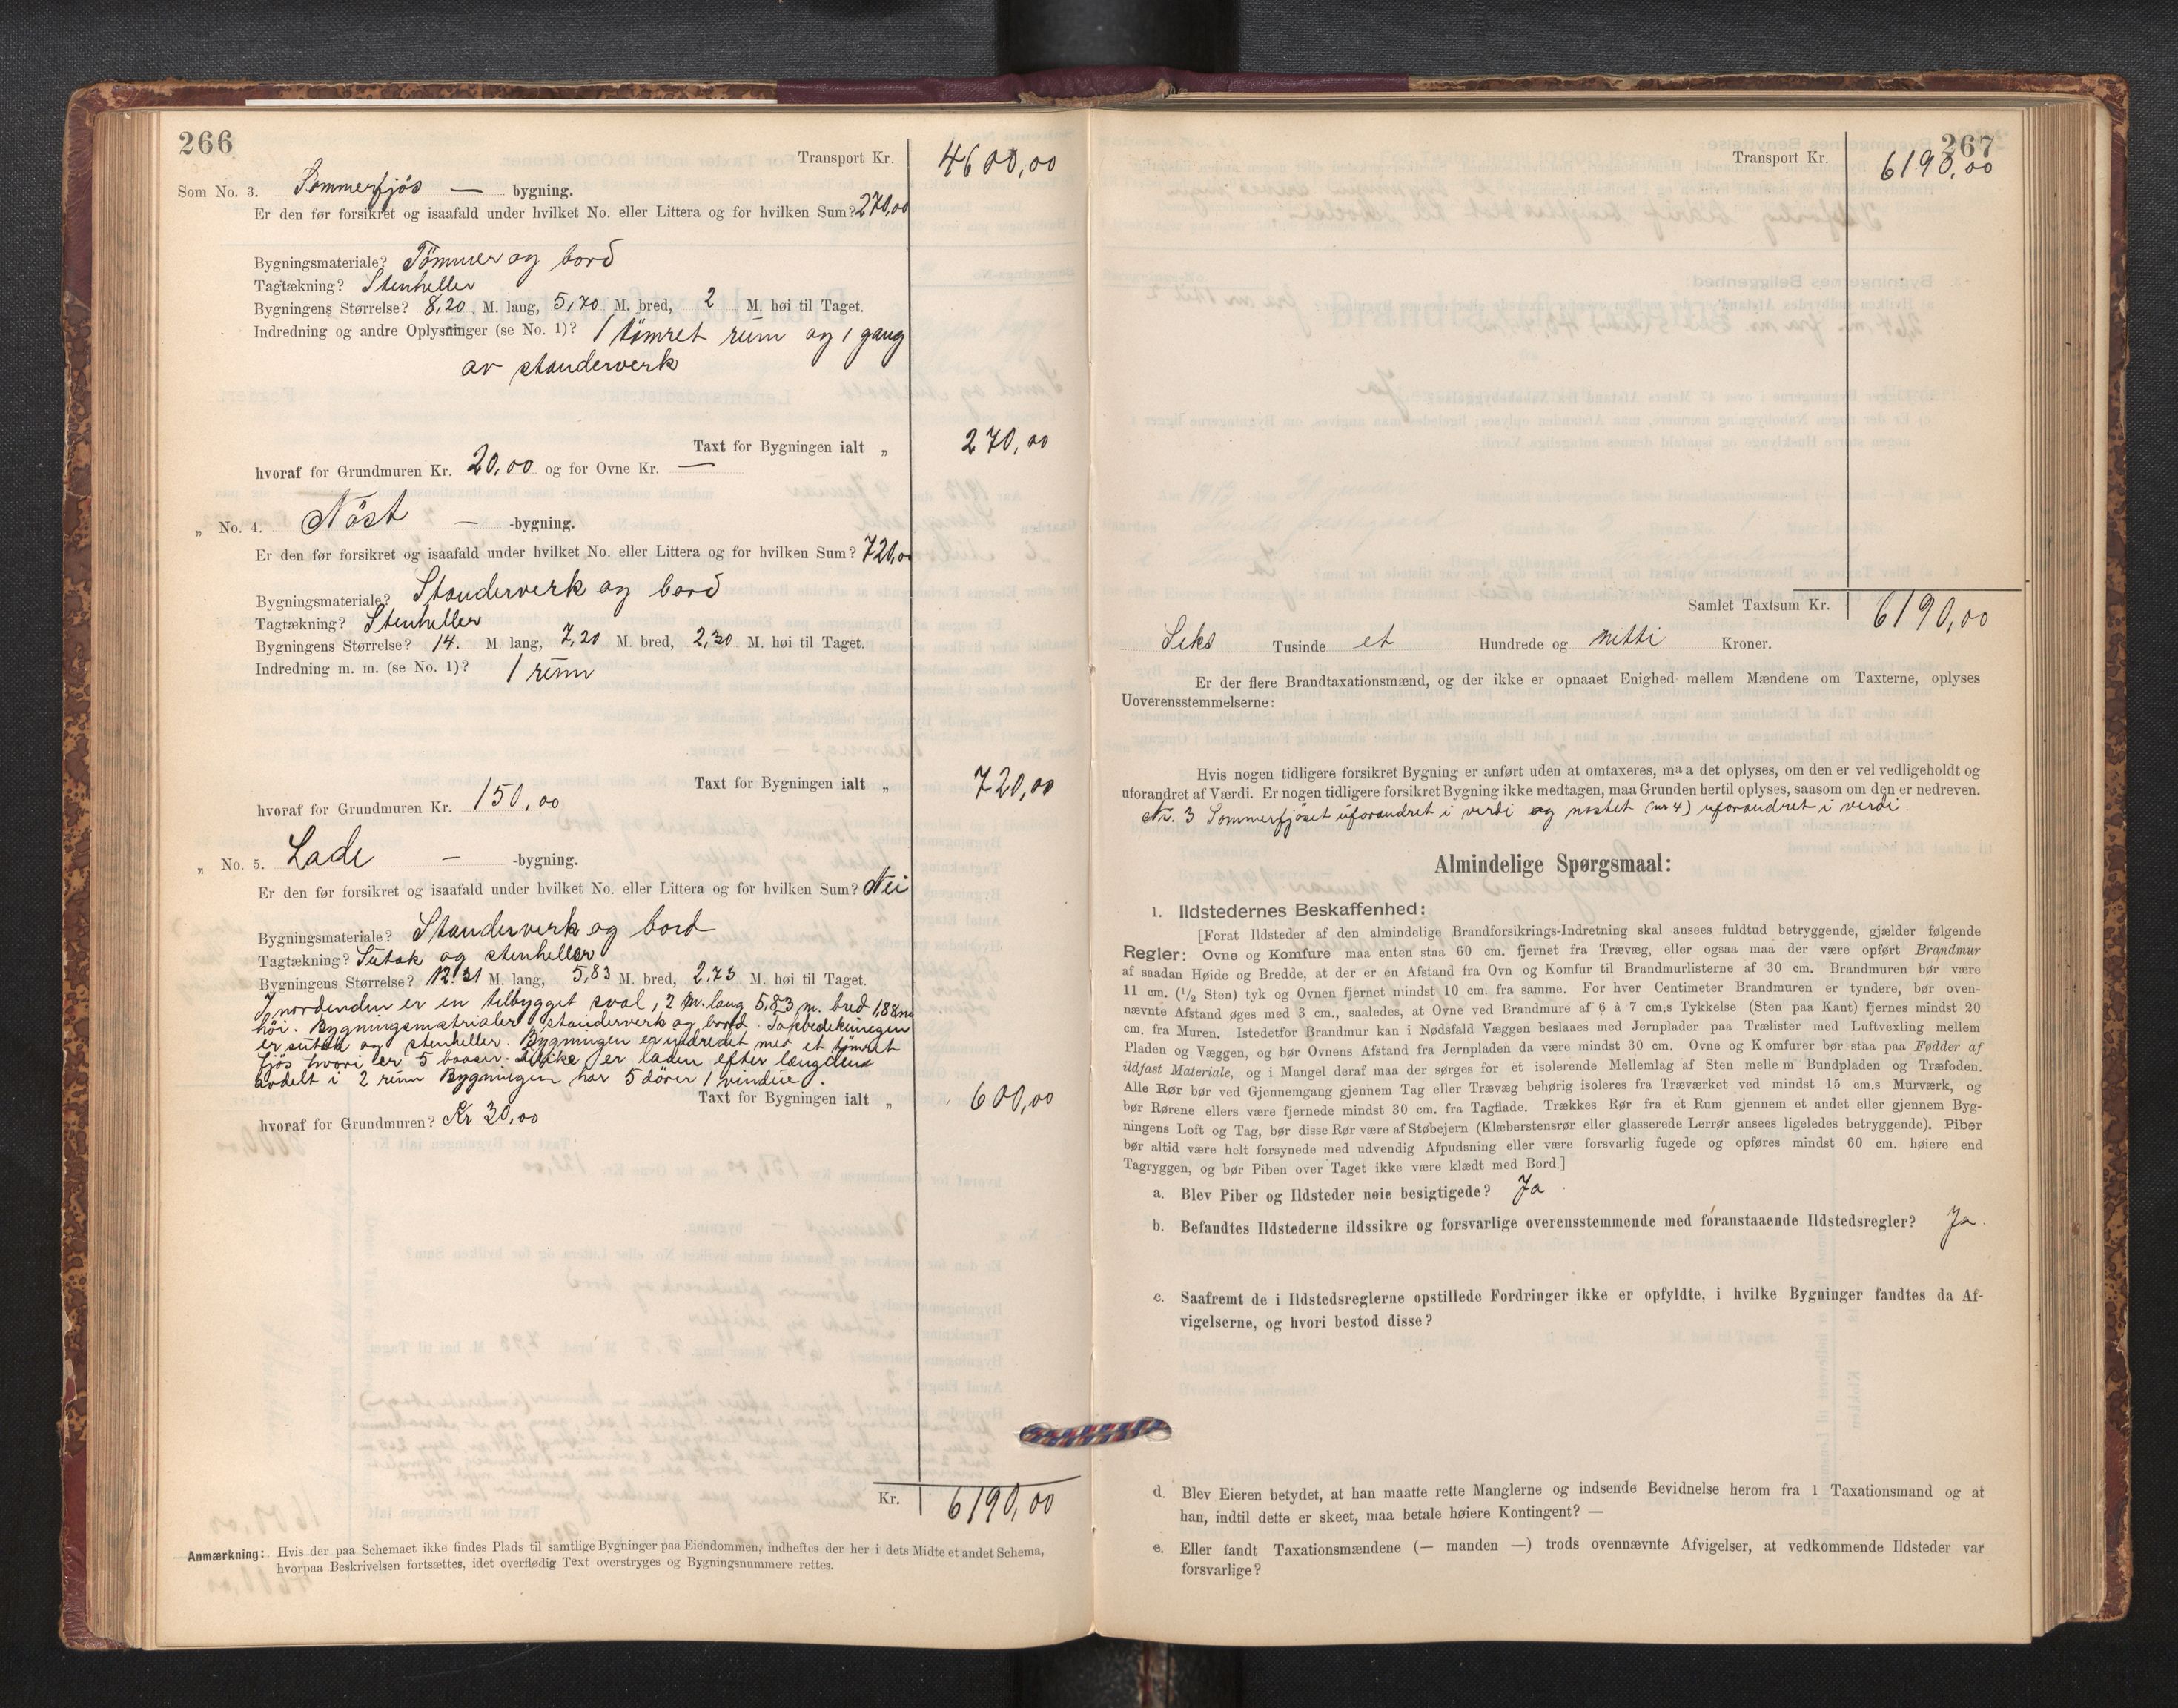 266
Transport Kr. 4600,00
Som No. 3. Sommerfjös — bygning.
Er den før forsikret og isaafald under hvilket No. eller Littera og for hvilken Sum? 270,00
Bygningsmateriale? Tömmer og bord
Tagtækning? Stenheller
Bygningens Størrelse? 8,20 M. lang, 5,70 M. bred, 2 M. høi til Taget.
Indredning og andre Oplysninger (se No. 1)? 1 tömret rum og 1 gang
av standerverk
Taxt for Bygningen ialt „ 270,00
hvoraf for Grundmuren Kr. 20,00 og for Ovne Kr. —
„ No. 4. Nöst — -bygning.
Er den før forsikret og isaafald under hvilket No. eller Littera og for hvilken Sum? 720,00
Bygningsmateriale? Standerverk og bord
Tagtækning? Stenheller
Bygningens Størrelse? 14. M. lang, 7,20 M. bred, 2,30 M. høi til Taget.
Indredning m. m. (se No. 1)? 1 rum
Taxt for Bygningen ialt „ 720,00
hvoraf for Grundmuren Kr. 150,00
„ No. 5. Lade — -bygning.
Er den før forsikret og isaafald under hvilket No. eller Littera og for hvilken Sum? Nei
Bygningsmateriale? Standerverk og bord
Tagtækning? Sutak og stenheller
Bygningens Størrelse? 12.31 M. lang, 5,83 M. bred, 2,73 M. høi til Taget.
I nordenden er en tilbygget sval, 2 M. lang 5,83 m. bred 1,88 m
höi. Bygningsmatrialer standerverk og bord. Takbedekningen
er sutak og stenheller. Bygningen er indredet med et tömret
fjös hvori er 5 baaser. Likke er laden efter længden
avdelt i 2 rum Bygningen har 5 dörer 1 vindue.
Taxt for Bygningen ialt „ 600,00
hvoraf for Grundmuren? Kr 30,00
Kr. 6190,00
Anmærkning: Hvis der paa Schemaet ikke findes Plads til samtlige Bygninger paa Eiendommen, indheftes der her i dets Midte et andet Schema,
hvorpaa Beskrivelsen fortsættes, idet overflødig Text overstryges og Bygningsnummere rettes.
267
Transport Kr. 6190,00
Samlet Taxtsum Kr. 6190,00
Seks Tusinde et Hundrede og nitti Kroner.
Er der flere Brandtaxationsmænd, og der ikke er opnaaet Enighed mellem Mændene om Taxterne, oplyses
Uoverensstemmelserne:
Hvis nogen tidligere forsikret Bygning er anført uden at omtaxeres, maa det oplyses, om den er vel vedligeholdt og
uforandret af Værdi. Er nogen tidligere forsikret Bygning ikke medtagen, maa Grunden hertil oplyses, saasom om den er nedreven.
Nr. 3 Sommerfjöset uforandret i verdi og nostet (nr 4) uforandret i verdi.
Almindelige Spørgsmaal:
1. Ildstedernes Beskaffenhed:
[Forat Ildsteder af den almindelige Brandforsikrings-Indretning skal ansees fuldtud betryggende, gjælder følgende
Regler: Ovne og Komfure maa enten staa 60 cm. fjernet fra Trævæg, eller ogsaa maa der være opført Brandmur
af saadan Høide og Bredde, at der er en Afstand fra Ovn og Komfur til Brandmurlisterne af 30 cm. Brandmuren bør være
11 cm. (1/2 Sten) tyk og Ovnen fjernet mindst 10 cm. fra samme. For hver Centimeter Brandmuren er tyndere, bør oven-
nævnte Afstand øges med 3 cm., saaledes, at Ovne ved Brandmure af 6 à 7 cm.s Tykkelse (Sten paa Kant) fjernes mindst 20
cm. fra Muren. Istedetfor Brandmur kan i Nødsfald Væggen beslaaes med Jernplader paa Trælister med Luftvexling mellem
Pladen og Væggen, og bør Ovnens Afstand fra Jernpladen da være mindst 30 cm. Ovne og Komfurer bør staa paa Fødder af
ildfast Materiale, og i Mangel deraf maa der sørges for et isolerende Mellemlag af Sten mellem Bundpladen og Træfoden.
Alle Rør bør ved Gjennemgang gjennem Tag eller Trævæg behørig isoleres fra Træværket ved mindst 15 cm.s Murværk, og
bør Rørene ellers være fjernede mindst 30 cm. fra Tagflade. Trækkes Rør fra et Rum gjennem et andet eller gjennem Byg-
ningens Loft og Tag, bør disse Rør være af Støbejern (Klæberstensrør eller glasserede Lerrør ansees ligeledes betryggende). Piber
bør altid være helt forsynede med udvendig Afpudsning eller være forsvarlig fugede og opføres mindst 60 cm. høiere end
Tagryggen, og bør Piben over Taget ikke være klædt med Bord.]
a. Blev Piber og Ildsteder nøie besigtigede? Ja
b. Befandtes Ildstederne ildssikre og forsvarlige overensstemmende med foranstaaende Ildstedsregler? Ja.
c. Saafremt de i Ildstedsreglerne opstillede Fordringer ikke er opfyldte, i hvilke Bygninger fandtes da Af-
vigelserne, og hvori bestod disse?
d. Blev Eieren betydet, at han maatte rette Manglerne og indsende Bevidnelse herom fra 1 Taxationsmand og at
han, indtil dette er skeet, maa betale høiere Kontingent? —
e. Eller fandt Taxationsmændene (— manden —) trods ovennævnte Afvigelser, at vedkommende Ildsteder var
forsvarlige?